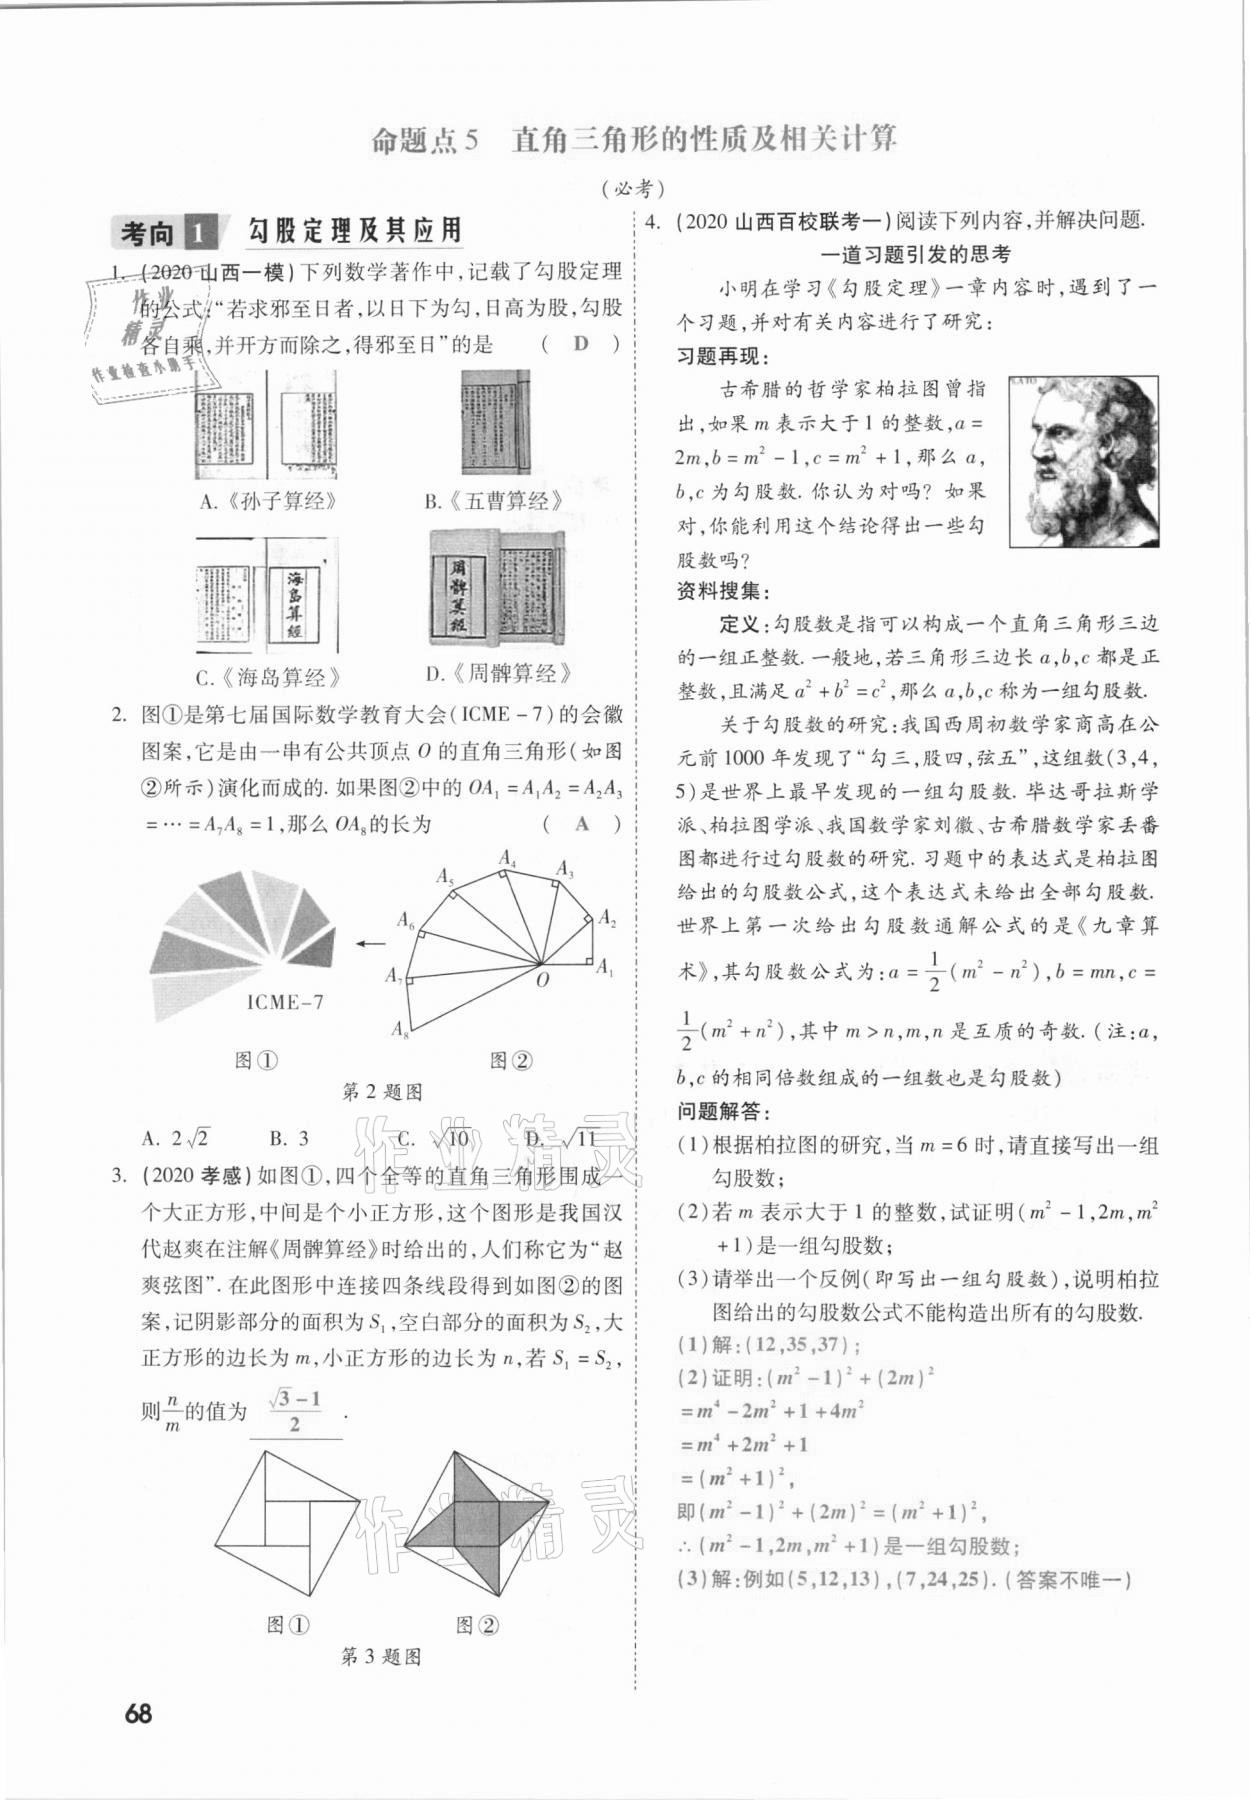 命题点5　直角三角形的性质及相关计算
(必考)
考向1　勾股定理及其应用
1. (2020山西一模)下列数学著作中,记载了勾股定理
的公式:“若求邪至日者,以日下为勾,日高为股,勾股
各自乘,并开方而除之,得邪至日”的是　( D )
作业
精灵
作业检查小助手
A.《孙子算经》　B.《五曹算经》
海岛算经
周髀算经
C.《海岛算经》　D.《周髀算经》
2. 图①是第七届国际数学教育大会(ICME-7)的会徽
图案,它是由一串有公共顶点 O 的直角三角形(如图
②所示)演化而成的. 如果图②中的 OA₁=A₁A₂=A₂A₃
=…=A₇A₈=1,那么 OA₈的长为　( A )
A₄
A₅ A₃
A₆ A₂
A₇ O A₁
A₈
ICME-7
图①　图②
第2题图
A. 2√2　B. 3　C. √10　D. √11
3. (2020孝感)如图①,四个全等的直角三角形围成一
个大正方形,中间是个小正方形,这个图形是我国汉
代赵爽在注解《周髀算经》时给出的,人们称它为“赵
爽弦图”. 在此图形中连接四条线段得到如图②的图
案,记阴影部分的面积为 S₁,空白部分的面积为 S₂,大
正方形的边长为 m,小正方形的边长为 n,若 S₁=S₂,
则 n/m 的值为 (√3-1)/2 .
图①　图②
第3题图
68
4. (2020山西百校联考一)阅读下列内容,并解决问题.
一道习题引发的思考
小明在学习《勾股定理》一章内容时,遇到了一
个习题,并对有关内容进行了研究:
习题再现:
古希腊的哲学家柏拉图曾指
出,如果 m 表示大于1的整数,a=
2m,b=m²-1,c=m²+1,那么 a,
b,c 为勾股数. 你认为对吗? 如果
对,你能利用这个结论得出一些勾
股数吗?
资料搜集:
定义:勾股数是指可以构成一个直角三角形三边
的一组正整数. 一般地,若三角形三边长 a,b,c 都是正
整数,且满足 a²+b²=c²,那么 a,b,c 称为一组勾股数.
关于勾股数的研究:我国西周初数学家商高在公
元前1000年发现了“勾三,股四,弦五”,这组数(3,4,
5)是世界上最早发现的一组勾股数. 毕达哥拉斯学
派、柏拉图学派、我国数学家刘徽、古希腊数学家丢番
图都进行过勾股数的研究. 习题中的表达式是柏拉图
给出的勾股数公式,这个表达式未给出全部勾股数.
世界上第一次给出勾股数通解公式的是《九章算
术》,其勾股数公式为:a=1/2(m²-n²),b=mn,c=
1/2(m²+n²),其中 m>n,m,n 是互质的奇数. (注:a,
b,c 的相同倍数组成的一组数也是勾股数)
问题解答:
(1)根据柏拉图的研究,当 m=6 时,请直接写出一组
勾股数;
(2)若 m 表示大于1的整数,试证明(m²-1,2m,m²
+1)是一组勾股数;
(3)请举出一个反例(即写出一组勾股数),说明柏拉
图给出的勾股数公式不能构造出所有的勾股数.
(1)解:(12,35,37);
(2)证明:(m²-1)²+(2m)²
=m⁴-2m²+1+4m²
=m⁴+2m²+1
=(m²+1)²,
即(m²-1)²+(2m)²=(m²+1)²,
∴(m²-1,2m,m²+1)是一组勾股数;
(3)解:例如(5,12,13),(7,24,25). (答案不唯一)
作业精灵
作业精灵